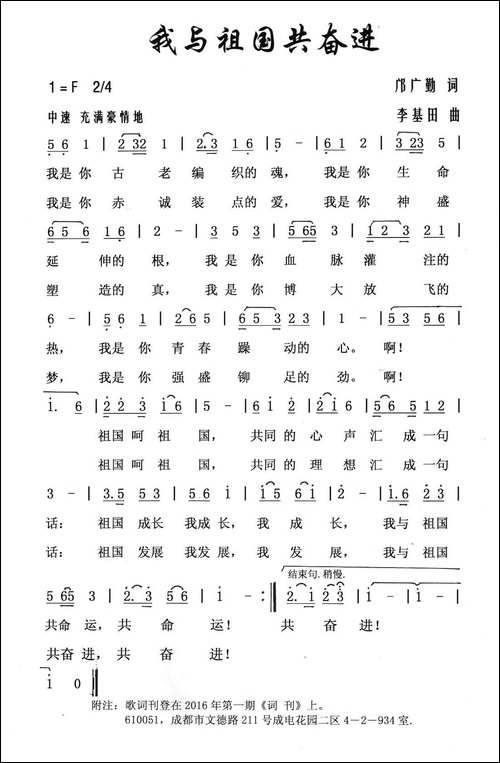 我与祖国共奋进
1=F 2/4 邝广勤 词
中速 充满豪情地 李基田 曲
5 6 1 | 2 3 2 1 | 2. 3 1 6 | 5 - | 6 1 2 | 3 2 3 5 |
我是你 古 老 编 织的 魂, 我是 你 生 命
我是你 赤 诚 装 点的 爱, 我是 你 神 盛
6 5 6 | 2 - | 3 5 3 | 5 65 3 | 1 2 3 | 2 1 |
延 伸的 根, 我 是 你 血 脉 灌 注的
塑 造的 真, 我 是 你 博 大 放 飞的
6 - | 5 6 | 1 2 6 | 6 5 3 2 3 | 1 - | 5 3 5 6 |
热, 我是 你 青 春 躁 动的 心。 啊!
梦, 我是 你 强 盛 铆 足的 劲。 啊!
1. 6 | 2 2 3 | 1 6 | 5 - | 6 1 | 2 1 2 | 5 6 5 | 2 1 2 |
祖国 呵 祖 国, 共同 的 心 声 汇 成 一句
祖国 呵 祖 国, 共同 的 理 想 汇 成 一句
3 - | 3. 5 5 3 | 5 6 1 | 1 5 6 1 | 2 - | 1. 6 2 3 |
话: 祖国 成长 我成 长, 我 成 长, 我与 祖国
话: 祖国 发展 我发 展, 我 发 展, 我与 祖国
结束句.稍慢.
5 65 3 | 2. 3 | 2 6 | 1 - :‖ 2. 1 2 3 | 1 - | 1 - |
共命 运, 共 命 运! 共 奋 进!
共奋 进, 共 奋 进!
1 0 ‖
附注: 歌词刊登在 2016 年第一期《词 刊》上。
610051, 成都市文德路 211 号成电花园二区 4-2-934 室.